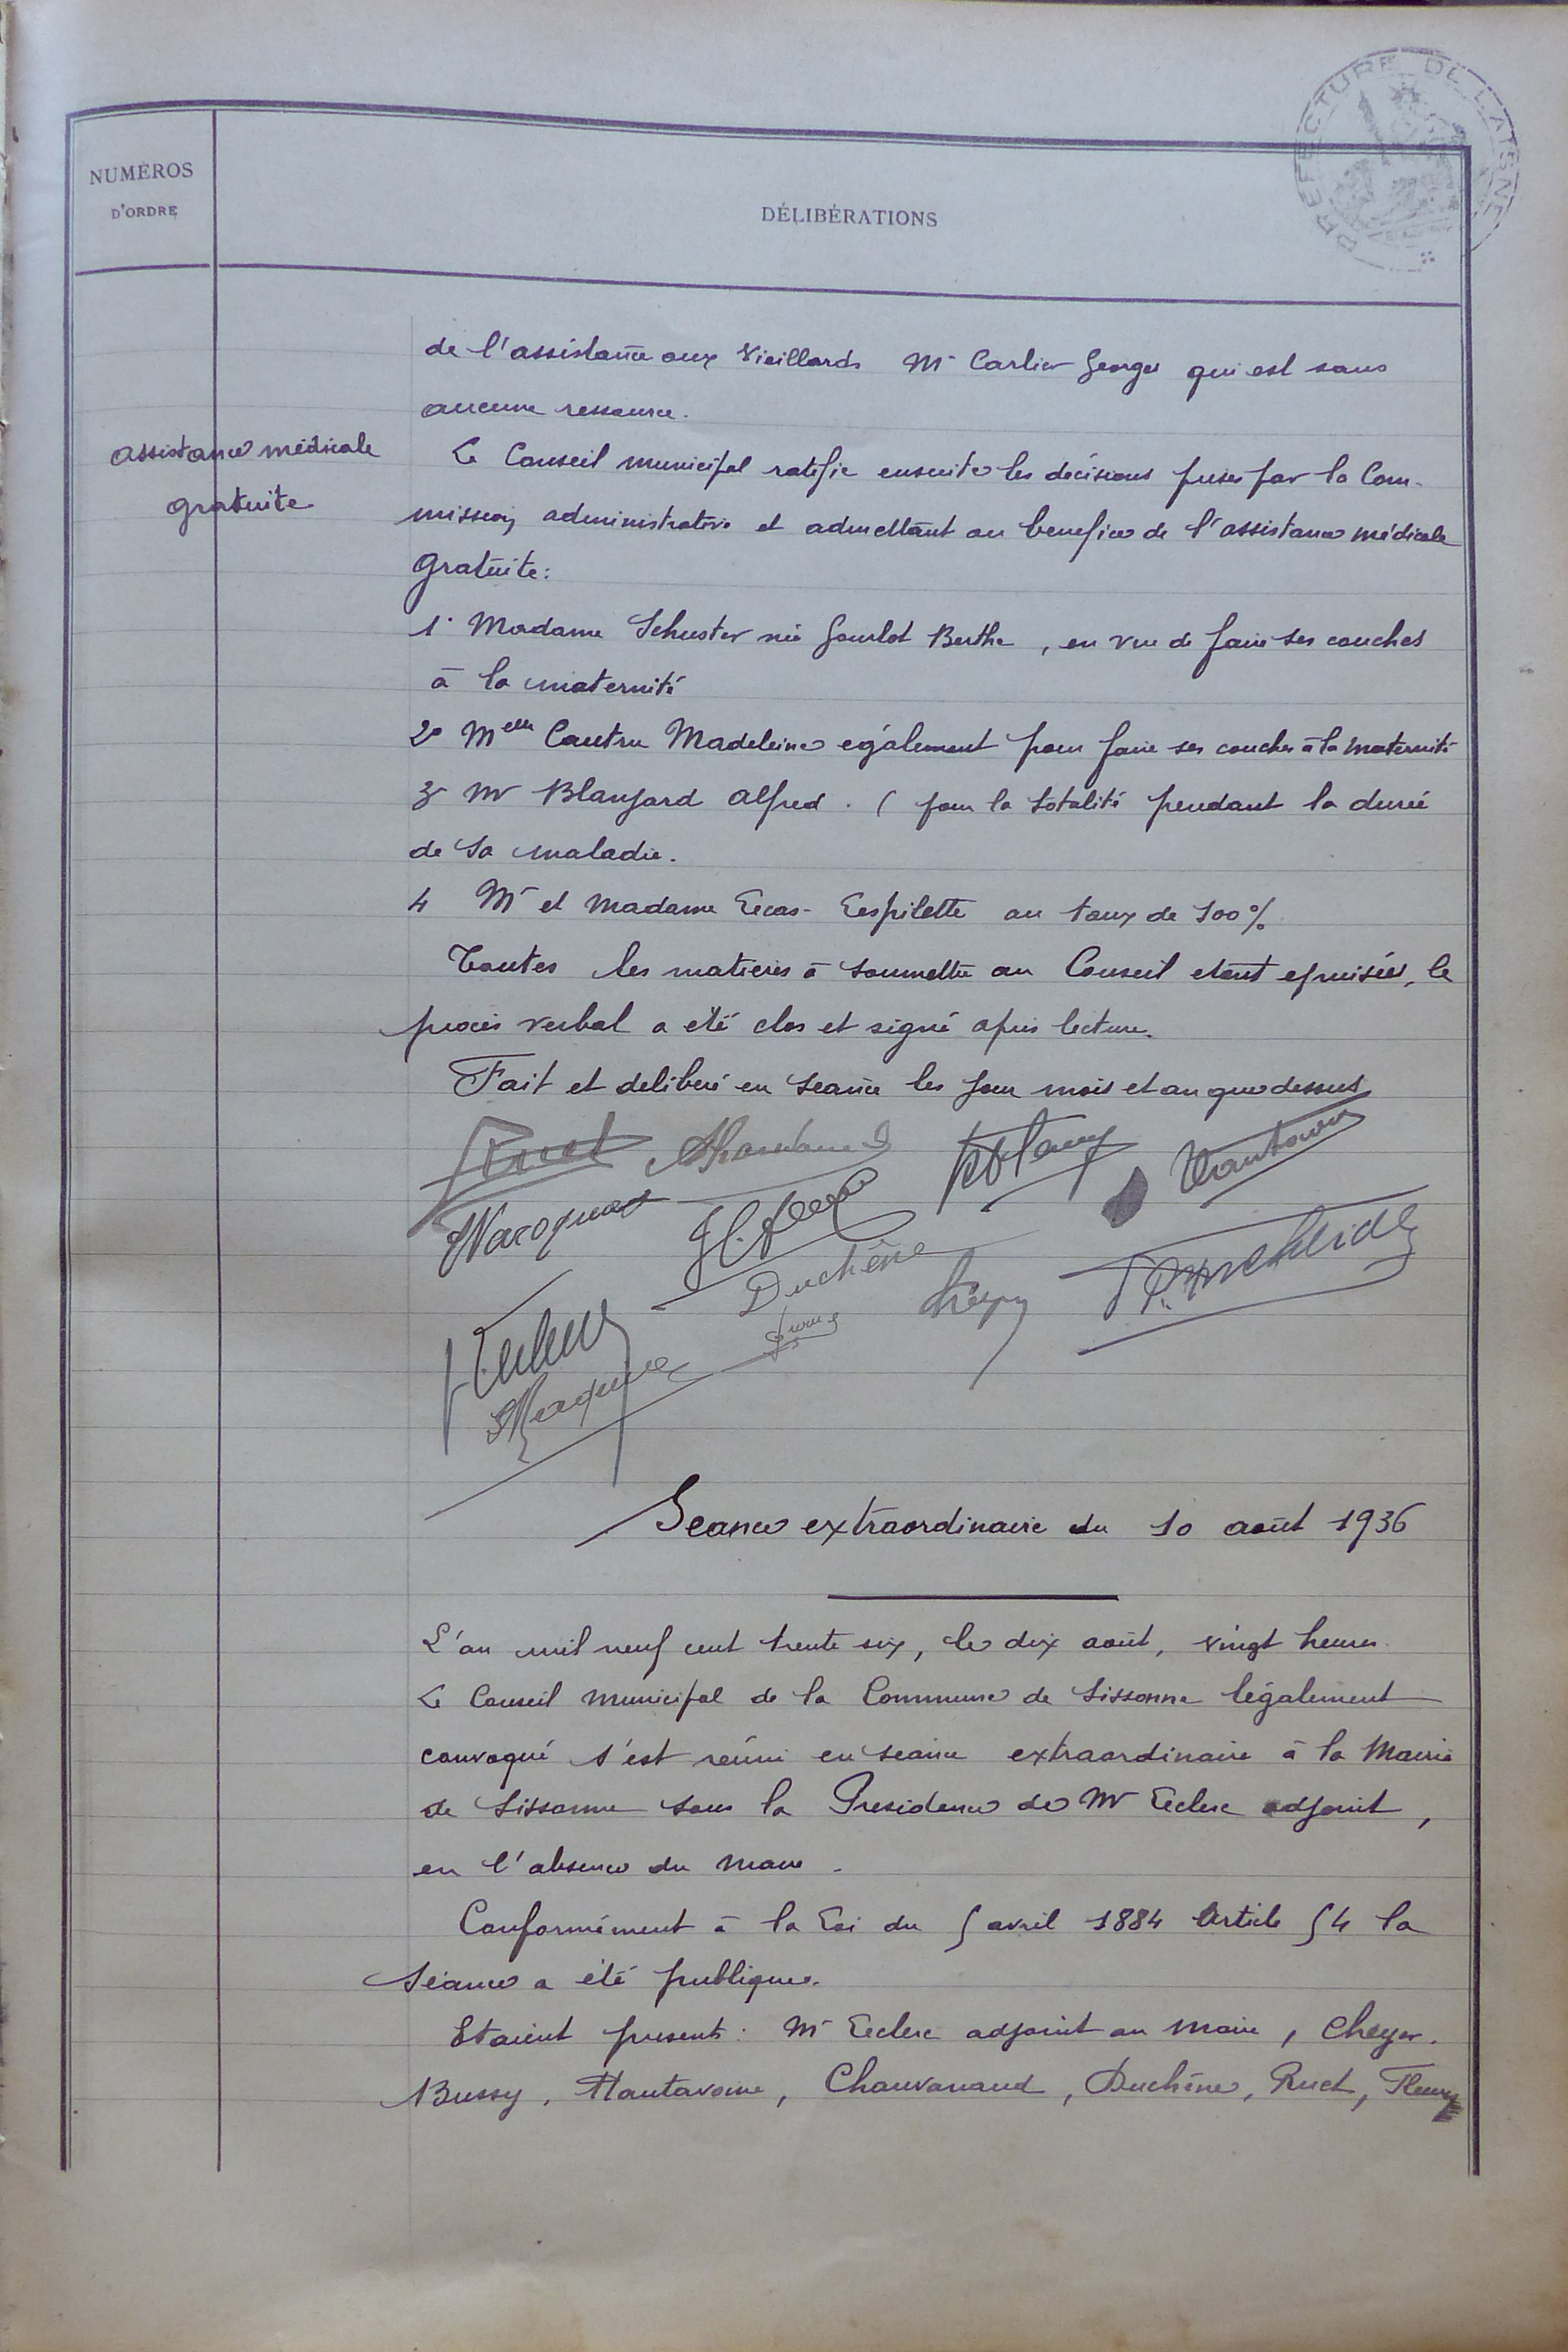 PREFECTURE DE L'AISNE
NUMÉROS
D'ORDRE
DÉLIBÉRATIONS
de l'assistance aux Vieillards Mr Carlier Georges qui est sans
aucune ressource.
assistance médicale
gratuite
Le Conseil municipal ratifie ensuite les décisions prises par la Com-
mission administrative et admettant au benefice de l'assistance médicale
Gratuite:
1° Madame Schuster née Gourlot Berthe, en vue de faire ses couches
à la maternité
2° Melle Cautru Madeleine également pour faire ses couches à la maternité
3° Mr Blanjard Alfred. ( pour la totalité pendant la durée
de sa maladie.
4 Mr et Madame Lecas-Lespilette au taux de 100%
Toutes les matieres à soumettre au Conseil etant epuisées, le
procès verbal a été clos et signé après lecture.
Fait et deliberé en Seance les jour mois et an que dessus
Duchêne
Seance extraordinaire du 10 août 1936
L'an mil neuf cent trente six, le dix août, vingt heures.
Le Conseil Municipal de la Commune de Sissonne légalement
convoqué s'est réuni en seance extraordinaire à la Mairie
de Sissonne sous la Presidence de Mr Leclerc adjoint,
en l'absence du maire.
Conformément à la Loi du 5 avril 1884 Article 54 la
Séance a été publique.
Etaient presents: Mr Leclerc adjoint au maire, Cheyer.
Bussy, Hautavoine, Chauvanaud, Duchêne, Ruet, Fleury